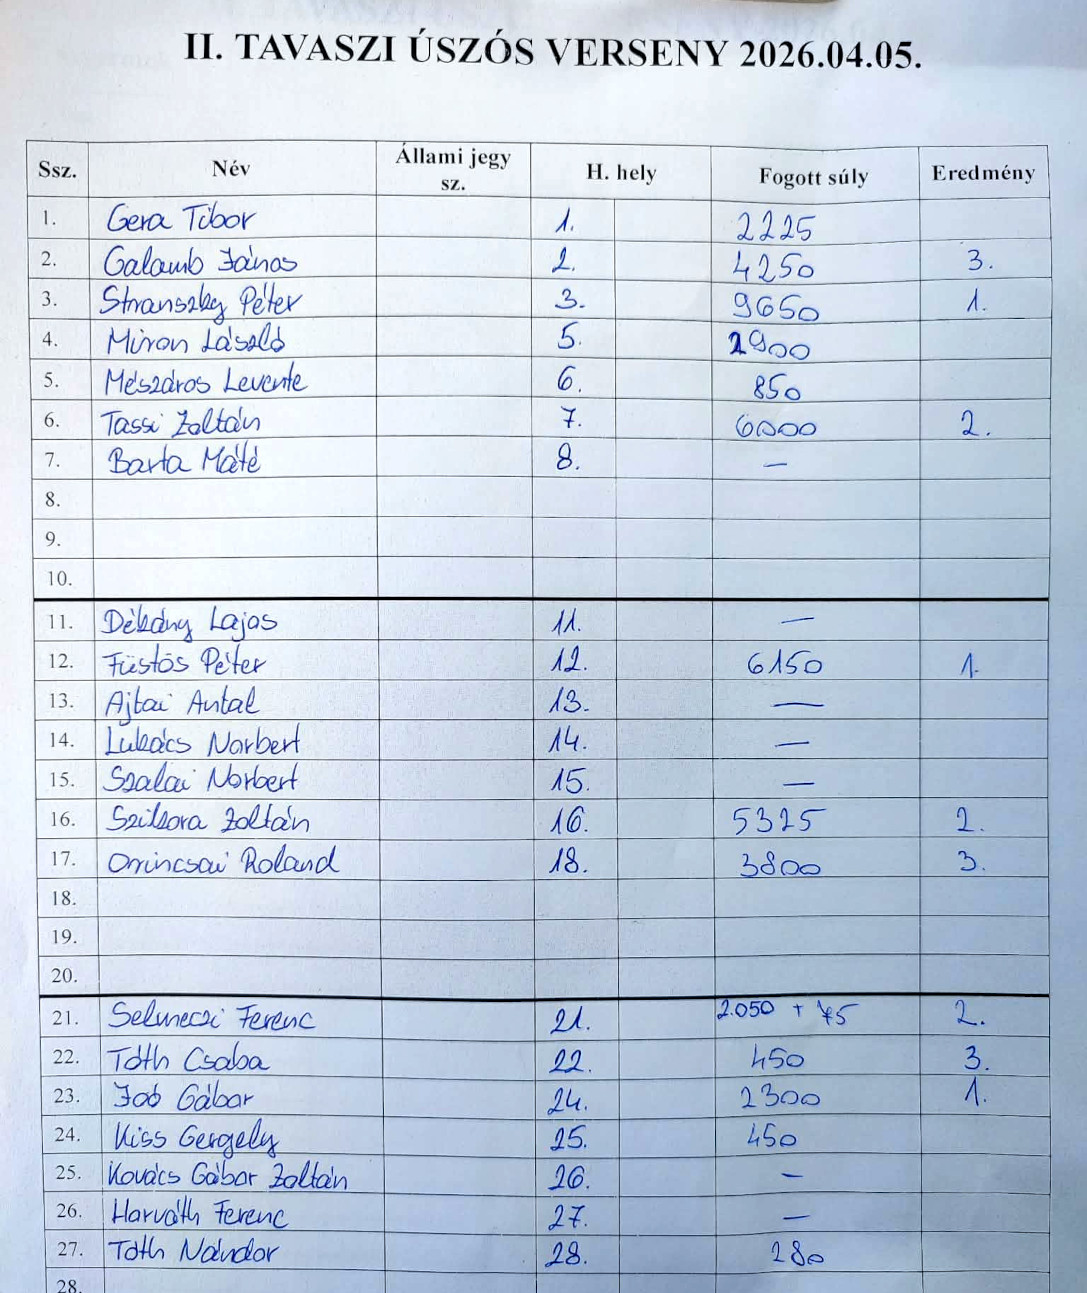 II. TAVASZI ÚSZÓS VERSENY 2026.04.05.
Ssz. Név Állami jegy sz. H. hely Fogott súly Eredmény
1. Gera Tibor 1. 2225
2. Galamb János 2. 4250 3.
3. Stranszky Péter 3. 9650 1.
4. Miron László 5. 2900
5. Mészáros Levente 6. 850
6. Tassi Zoltán 7. 6000 2.
7. Barta Máté 8. —
8.
9.
10.
11. Dékány Lajos 11. —
12. Füstös Péter 12. 6150 1.
13. Ajtai Antal 13. —
14. Lukács Norbert 14. —
15. Szalai Norbert 15. —
16. Szikora Zoltán 16. 5325 2.
17. Orincsai Roland 18. 3800 3.
18.
19.
20.
21. Selmeczi Ferenc 21. 2.050 + 75 2.
22. Tóth Csaba 22. 450 3.
23. Joó Gábor 24. 2300 1.
24. Kiss Gergely 25. 450
25. Kovács Gábor Zoltán 26. –
26. Horváth Ferenc 27. —
27. Tóth Nándor 28. 280
28.